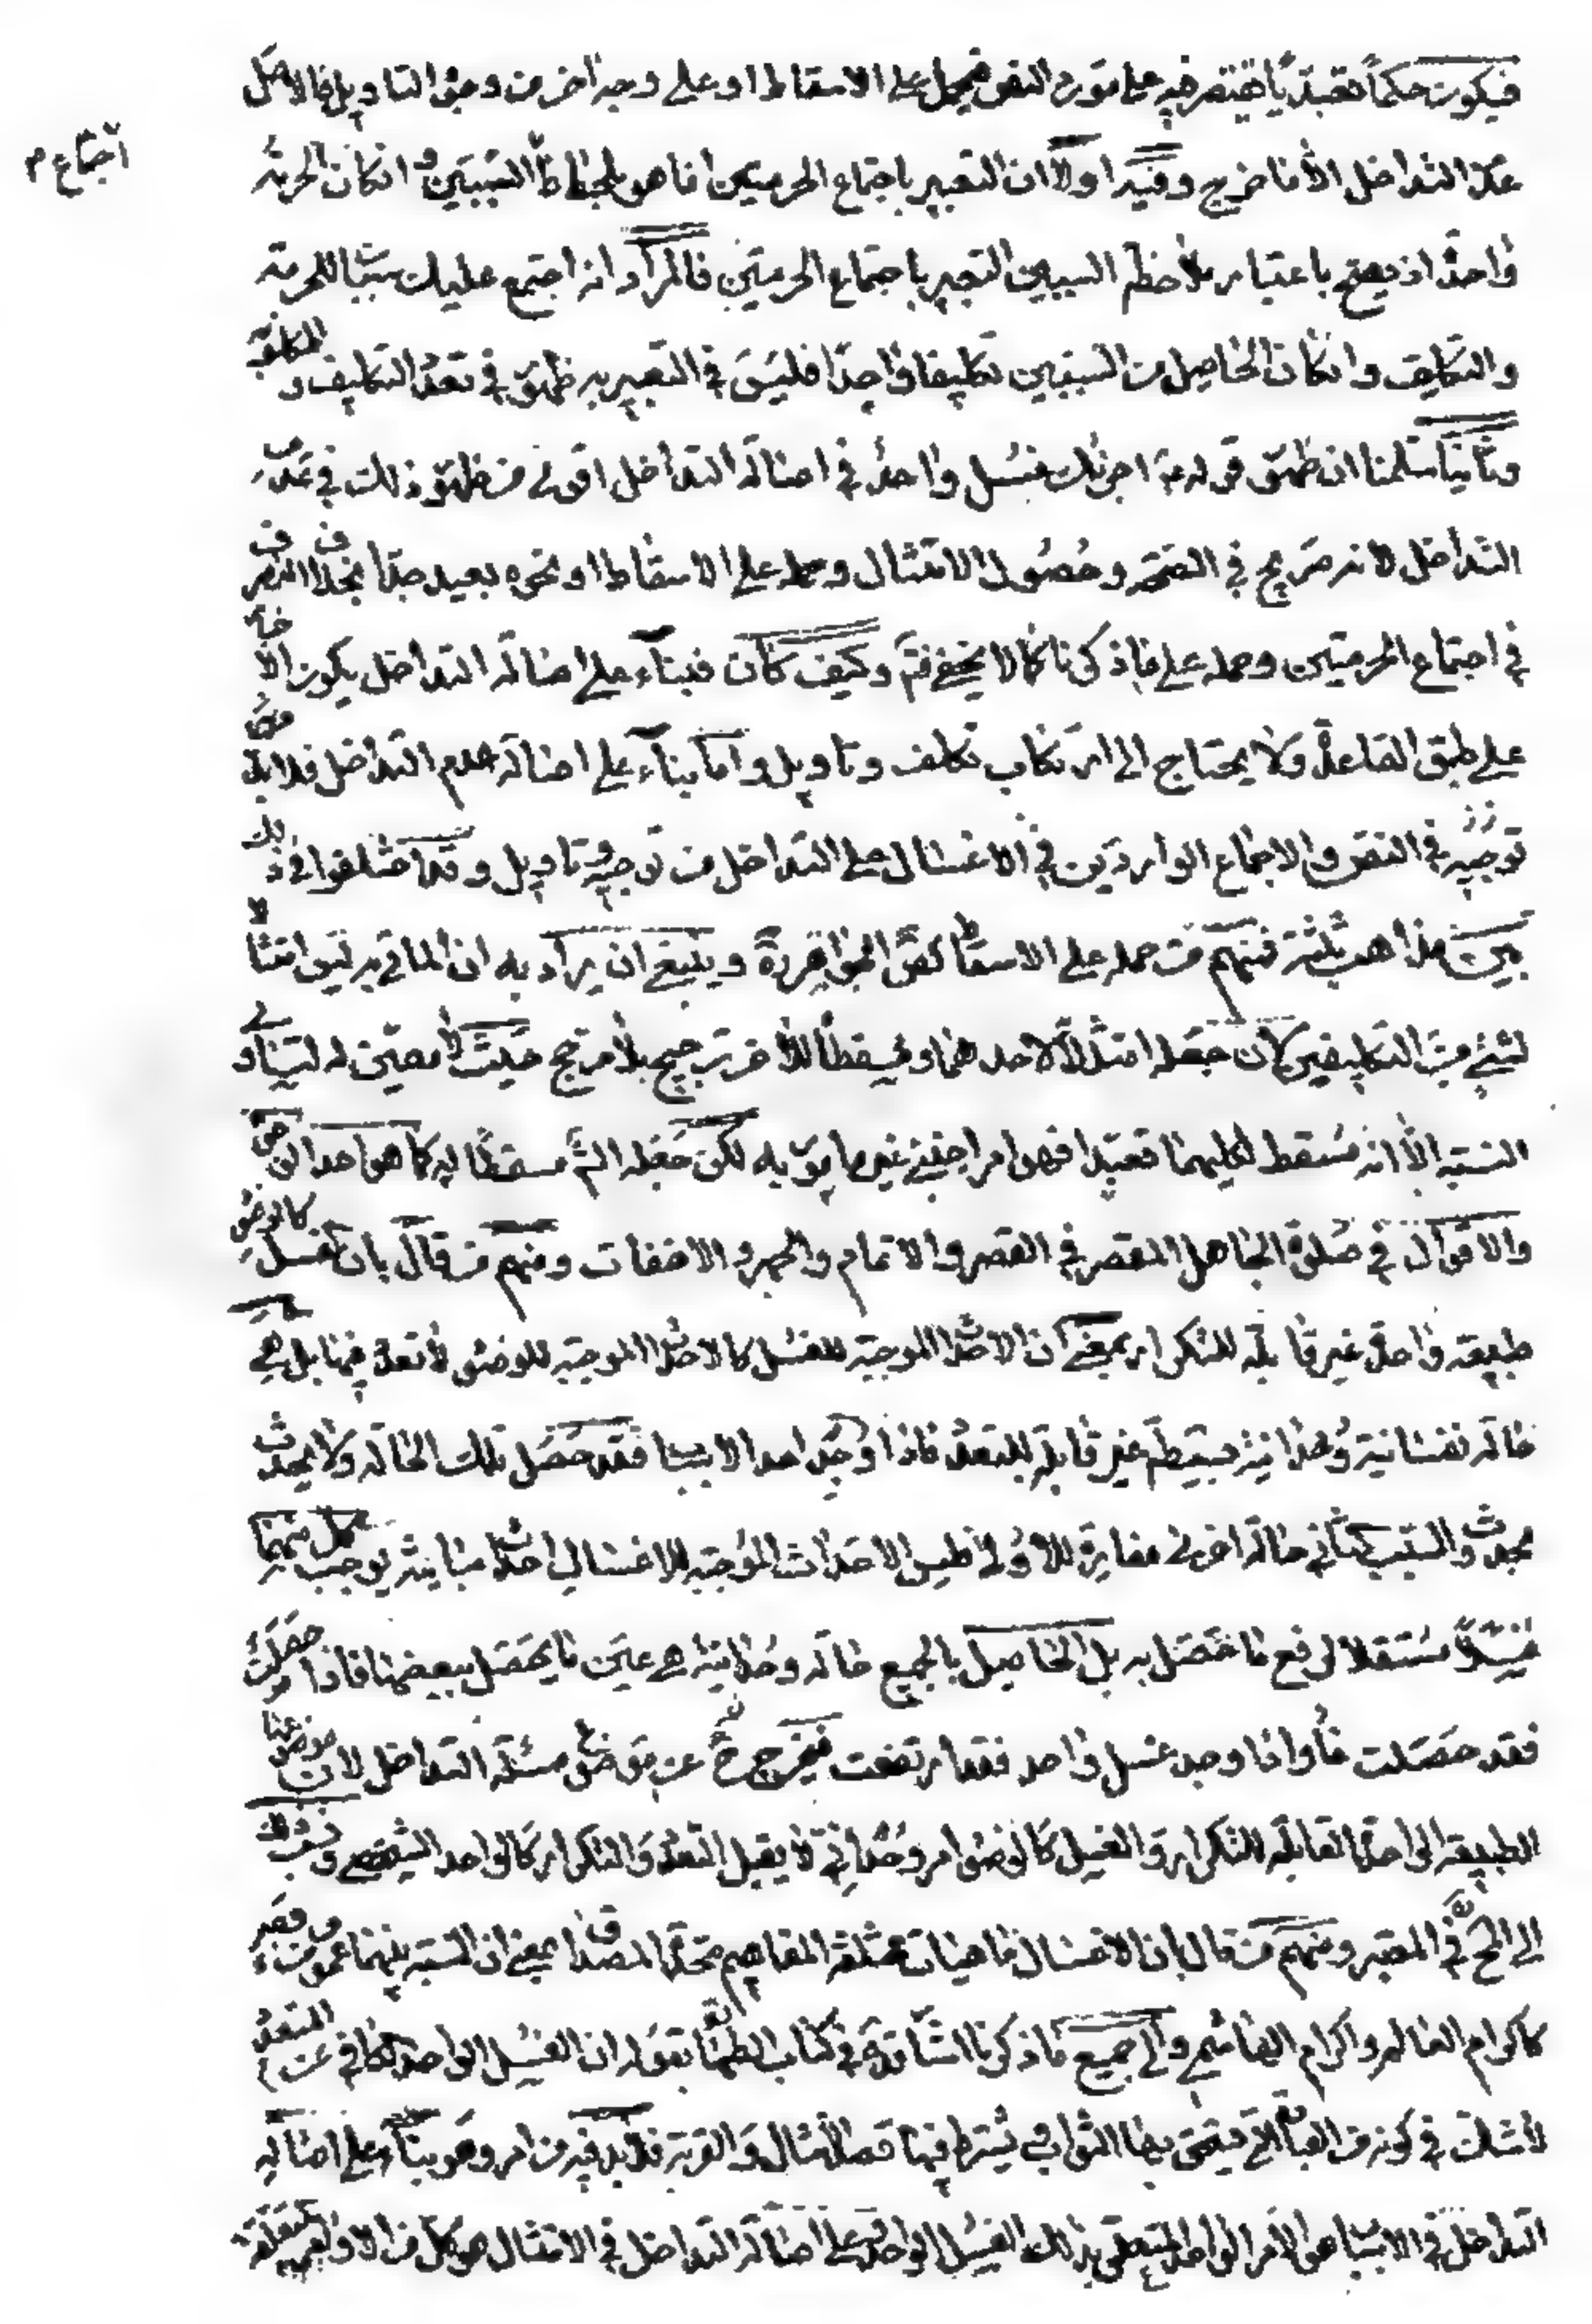 فيكون حكماً تعبدّيّاً يقتصر فيه على مورد النص فيحمل على الاسقاط او على وجه اخر من وجوه التاويل فالاصل
اجتماع م
عدم التداخل الا ما خرج وفيه اولاً ان التعبير باجتماع الحرمتين انما هو بلحاظ السّببين وانكان الحرمة
واحدة اذ يصحّ باعتبار ملاحظة السببين التعبير باجتماع الحرمتين فالمراد انه اجتمع عليك سببا للحرمة
والتكليف وانكان الحاصل من السّببين تكليفا واحدا فليس في التعبير به ظهور في تعدد التكليف و
وثانياً سلمنا ان ظهور قوله ع اجزئك غسل واحد في اصالة التداخل اقوى من ظهور ذلك في عدم
التداخل لانه صريح في الصحّة وحُصُول الامتثال وحمله على الاسقاط او نحوه بعيد جدّاً بخلاف التصرف
في اجتماع الحرمتين وحمله على ما ذكرنا كما لا يخفى فتم وكيف كان فبناء على اصالة التداخل يكون الا
على طبق القاعدة ولا يحتاج الى ارتكاب تكلف وتاويل واما بناء على اصالة عدم التداخل فلا بد
في النص والاجماع الواردين في الاغسال على التداخل من توجيه وتاويل وقد اختلفوا في ذلك
بين مذاهب ثلثة فمنهم من حمله على الاسقاط كصا الجواهر ره وينبغي ان يراد به ان الماتي به ليس امتثالا
لشيئ من التكليفين لان جعله امتثالاً لاحدهما ومسقطاً للاخر ترجيح بلا مرجح حيث لا معيّن له لتساوي
النسبة الا انه مسقط لكليهما تعبدا فهو امر اجنبي غير مامور به لكن جعله الش مسقطا له كما هو احد الوجوه
والاقوال في صلوة الجاهل المقصر في القصر والاتمام والجهر والاخفات ومنهم من قال بان الغسل كالوضوء
طبيعة واحدة غير قابلة للتكرار بمعنى ان الاحداث الموجبة للغسل كالاحداث الموجبة للوضوء لا تعدد فيها بل هي
حالة نفسانية وحدانية بسيطة غير قابلة للتعدد فاذا وجد احد الاسباب فقد حصل تلك الحالة ولا يحدث
بحدوث السبب الثاني حالة اخرى مغايرة للاولى فليس الاحداث الموجبة للاغسال احداثا متباينة يوجب كل منها
غسلاً مستقلا لرفع ما حصل به بل الحاصل بالجميع حالة وحدانية هي عين ما يحصل ببعضها فاذا حصلت
فقد حصلت واذا وجد غسل واحد فقد ارتفعت فيخرج ح عن موضوع مسئلة التداخل لان موضوعها
الطبيعة الواحدة القابلة للتكرار والغسل كالوضوء امر وحداني لا يقبل التعدد والتكرار كالواحد الشخصي ونسب ذلك
الى المحقق في المعتبر ومنهم من قال بان الاغسال ماهيات مختلفة المفاهيم متحدة المصداق بمعنى ان النسبة بينهما عموم من وجه
كاكرام العالم واكرام الهاشمي والى جميع ما ذكرنا اشار قده في كتاب الطهارة بقوله ان الغسل الواحد الكافي عن المتعدد
لا شك في كونه من العبادات التي يستحق بها الثواب يشترط فيها قصد الامتثال والقربة فلا بد فيه من امر وهو بناء على اصالة
التداخل في الاسباب هو الامر الواحد المتعلق بذلك الغسل الواحد وعلى اصالة التداخل في الامتثال هو كل من الاوامر